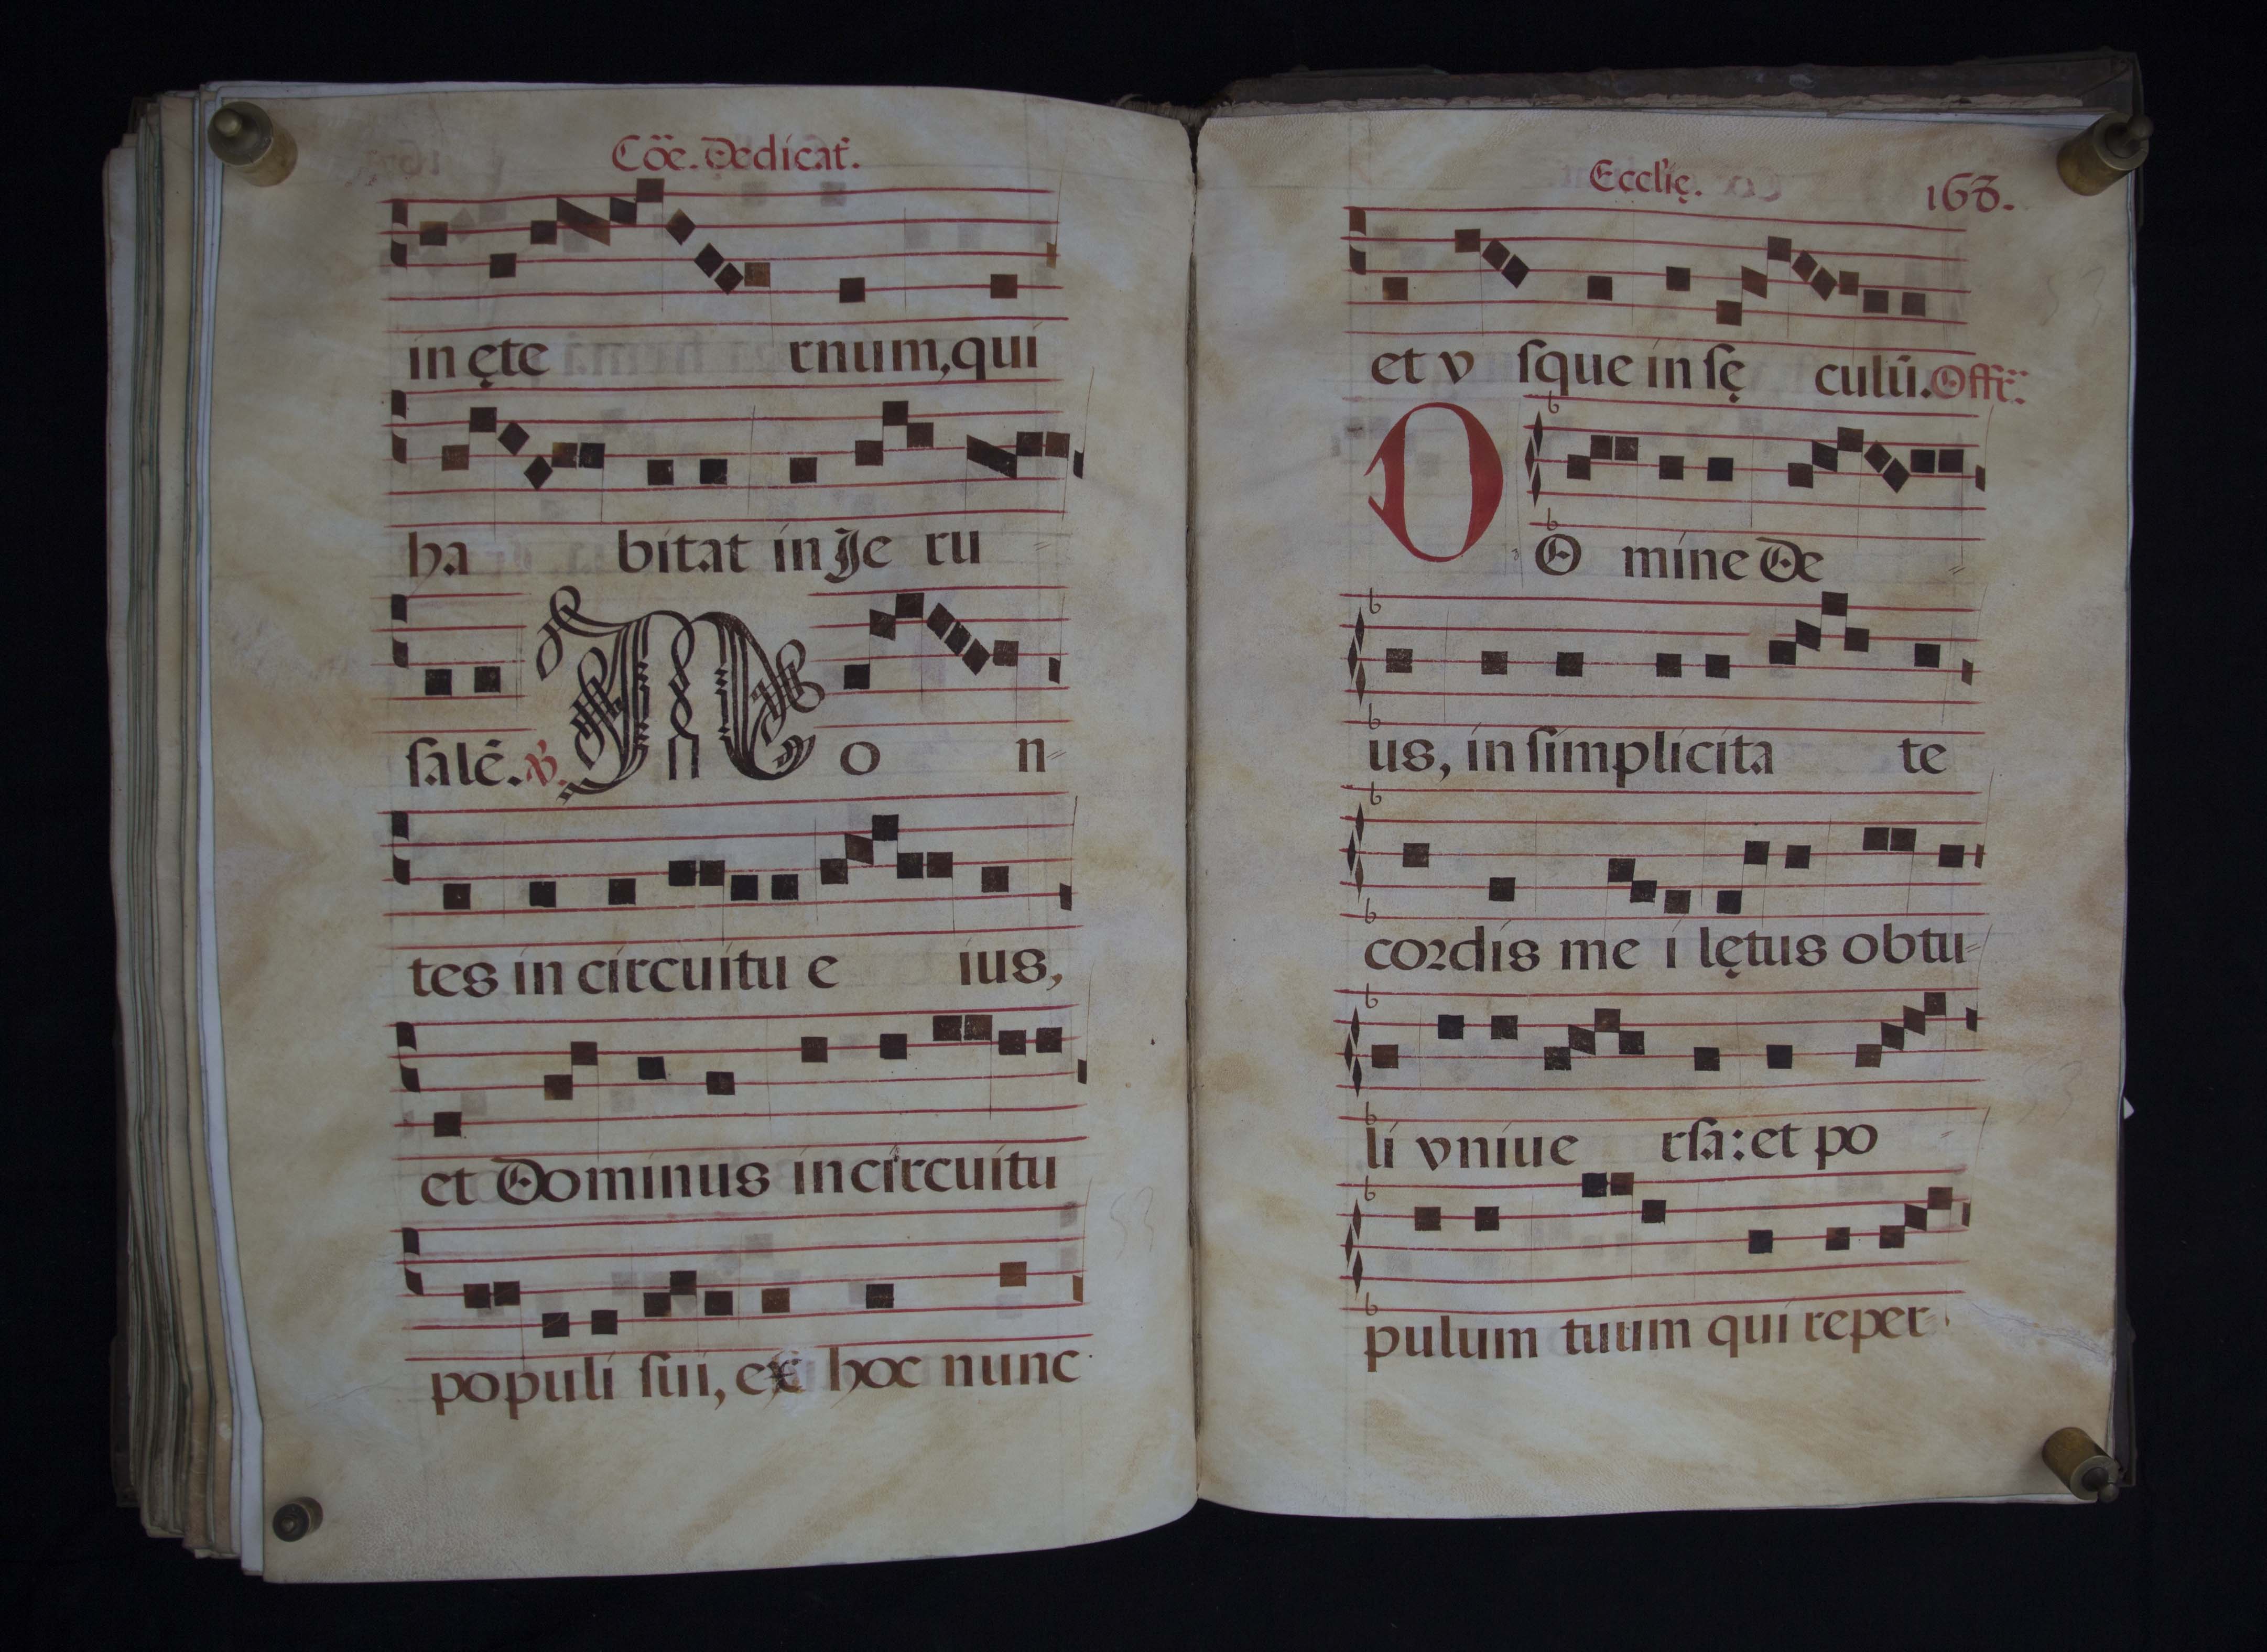 Cōe. Dedicat.
in ęte rnum, qui
ha bitat in Je ru
salē. ℣. M o n
tes in circuitu e ius,
et Dominus in circuitu
populi sui, ex hoc nunc
Eccłię. 168.
et v sque in sę culū. Offr.
D O mine De
us, in simplicita te
cordis me i lętus obtu
li vniue rsa: et po
pulum tuum qui reper